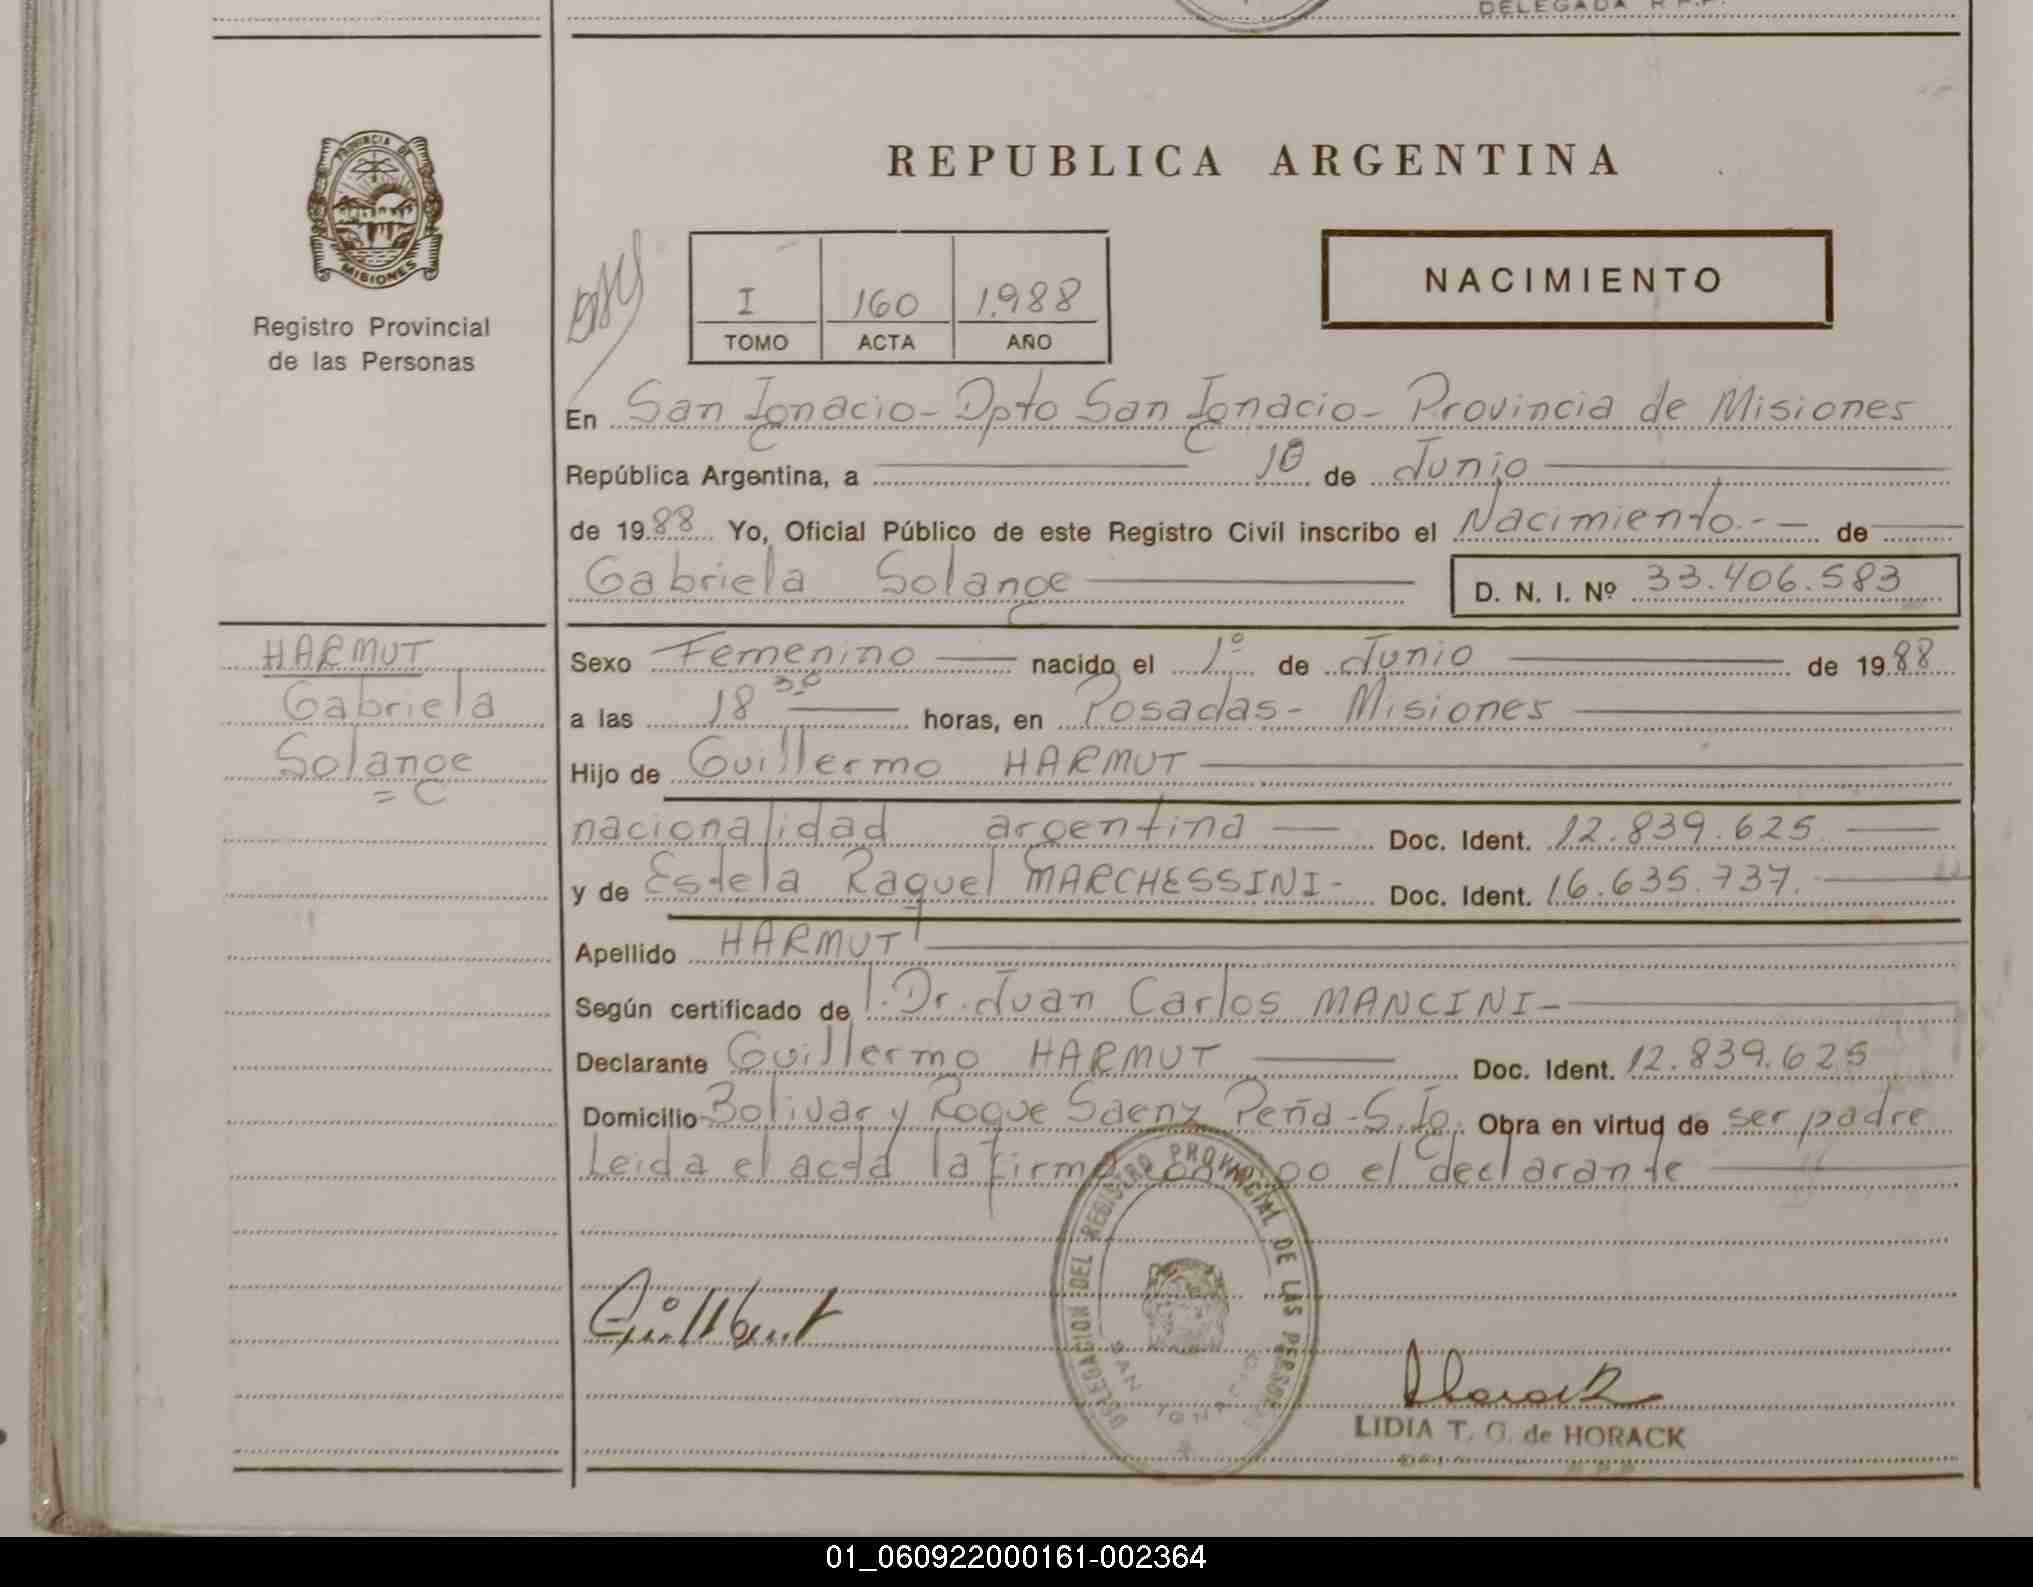 DELEGADA R.P.P.
PROVINCIA DE
MISIONES
Registro Provincial
de las Personas
REPUBLICA ARGENTINA
NACIMIENTO
I 160 1.988
TOMO ACTA AÑO
En San Ignacio - Dpto San Ignacio - Provincia de Misiones
República Argentina, a 10 de Junio
de 1988 Yo, Oficial Público de este Registro Civil inscribo el Nacimiento.- - de
Gabriela Solange D. N. I. Nº 33.406.583
HARMUT
Gabriela
Solange
Sexo Femenino nacido el 1º de Junio de 1988
a las 18 30 horas, en Posadas - Misiones
Hijo de Guillermo HARMUT
nacionalidad argentina Doc. Ident. 12.839.625
y de Estela Raquel MARCHESSINI - Doc. Ident. 16.635.737.
Apellido HARMUT
Según certificado de l. Dr. Juan Carlos MANCINI -
Declarante Guillermo HARMUT Doc. Ident. 12.839.625
Domicilio Bolivar y Roque Saenz Peña - S. Ig. Obra en virtud de ser padre
Leida el acta la firma conmigo el declarante
DELEGACION DEL REGISTRO PROVINCIAL DE LAS PERSONAS
SAN IGNACIO
LIDIA T. G. de HORACK
01_060922000161-002364